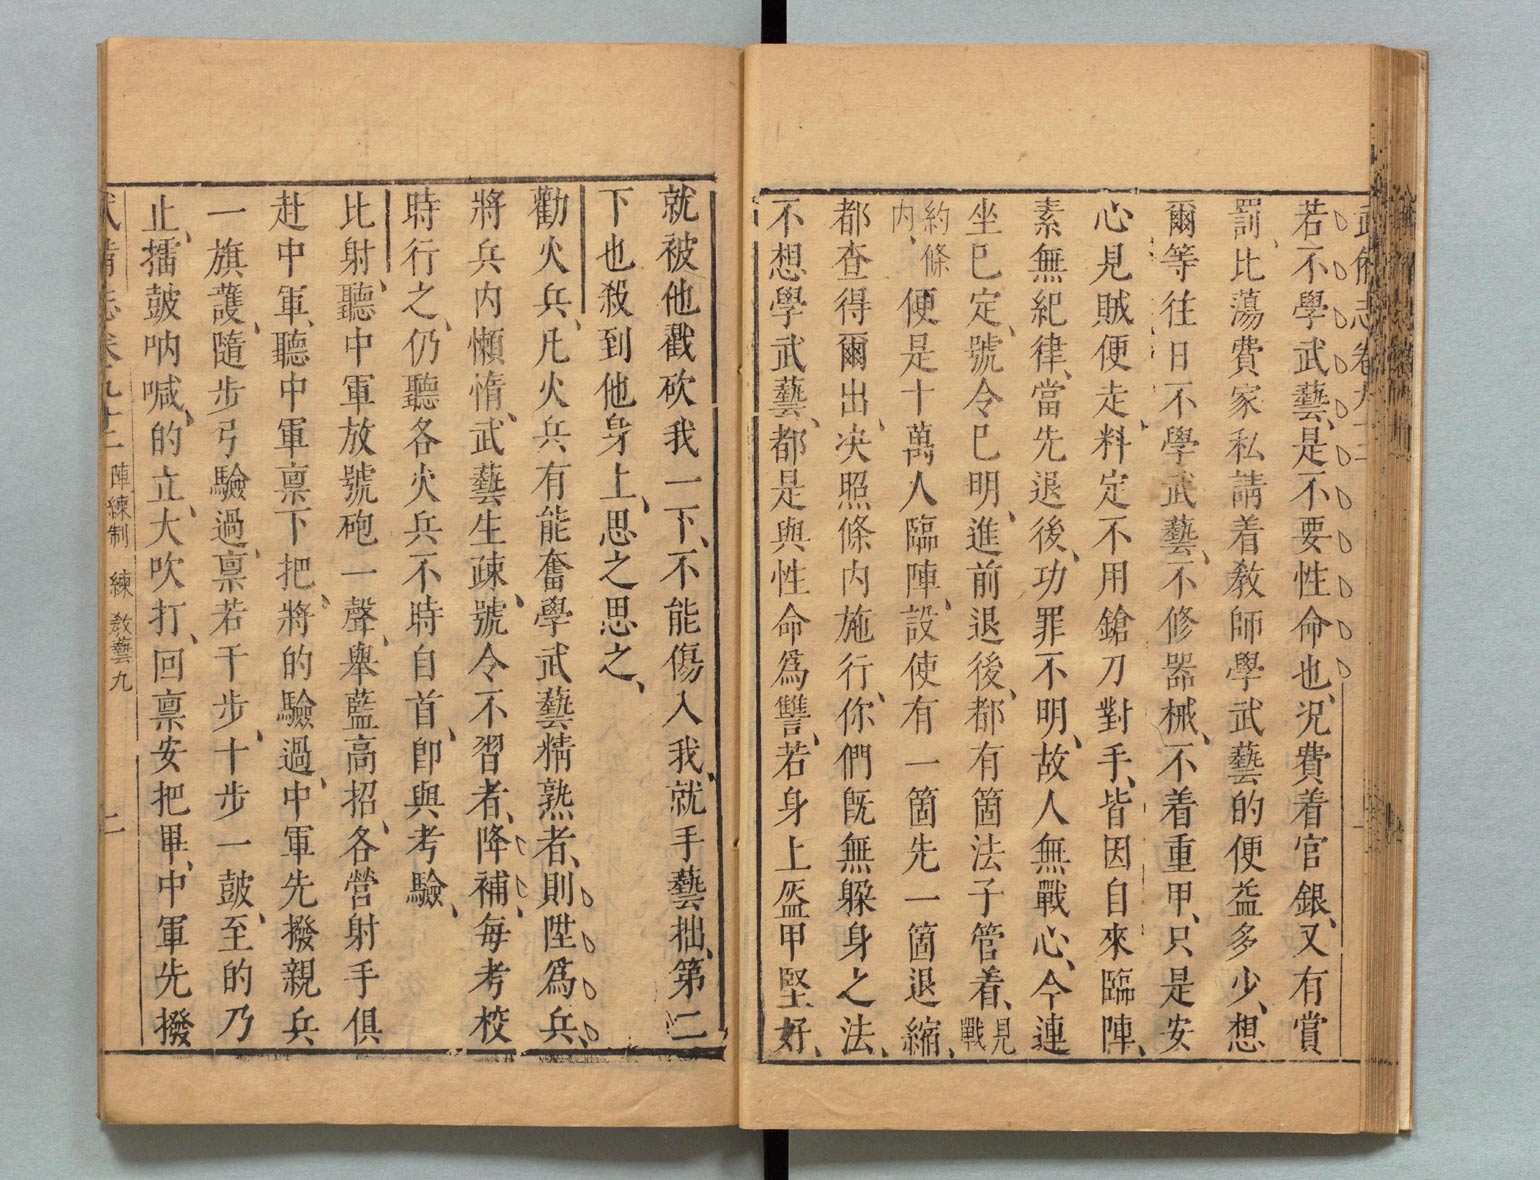 武備志卷九十二
若不學武藝、是不要性命也、况費着官銀、又有賞
罰、比蕩費家私請着教師學武藝的便益多少、想
爾等往日不學武藝、不修器械、不着重甲、只是安
心見賊便走、料定不用鎗刀對手、皆因自來臨陣、
素無紀律、當先退後、功罪不明、故人無戰心、今連
坐已定、號令已明、進前退後、都有箇法子管着、見戰
約條内、便是十萬人臨陣、設使有一箇先一箇退縮、
都查得爾出、决照條内施行、你們旣無躱身之法、
不想學武藝、都是與性命爲讐、若身上盔甲堅好、
就被他戳砍我一下、不能傷入我、就手藝拙、第二
下也殺到他身上、思之思之、
勸火兵、凡火兵有能奮學武藝精熟者、則陞爲兵、
將兵内懶惰、武藝生疎、號令不習者、降補、每考校
時行之、仍聽各火兵不時自首、卽與考驗、
比射、聽中軍放號砲一聲、舉藍高招、各營射手俱
赴中軍、聽中軍禀下把、將的驗過、中軍先撥親兵
一旗護、隨步弓驗過、禀若干步、十步一皷、至的乃
止、擂皷吶喊、的立、大吹打、回禀安把畢、中軍先撥
武備志卷九十二 陣練制 練 敎藝九 二